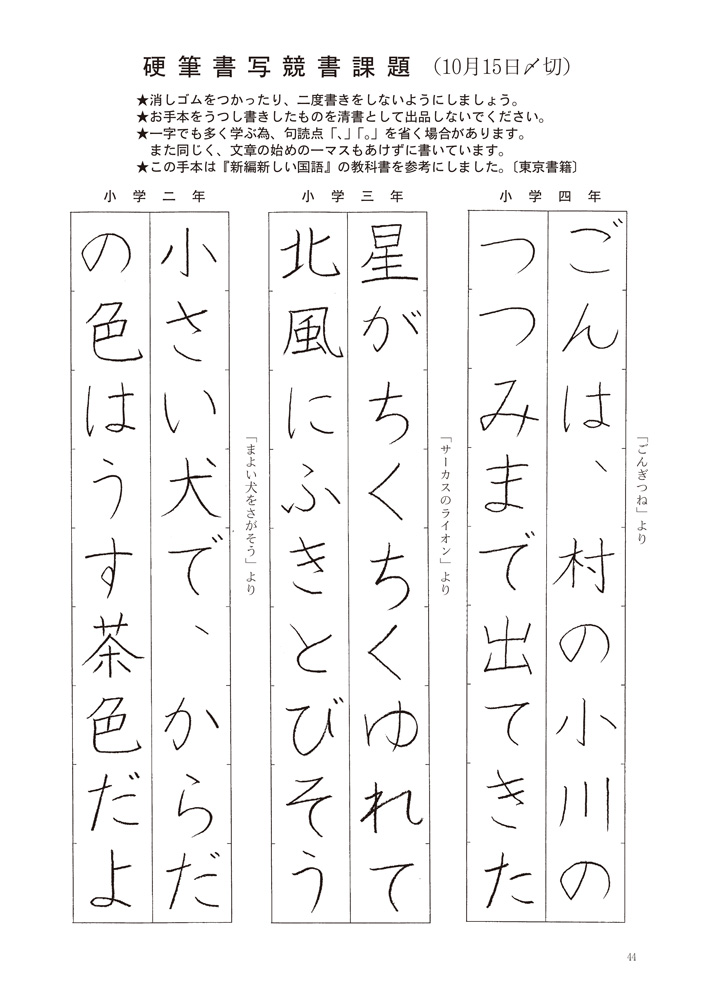 硬筆書写競書課題（10月15日〆切）
★消しゴムをつかったり、二度書きをしないようにしましょう。
★お手本をうつし書きしたものを清書として出品しないでください。
★一字でも多く学ぶ為、句読点「、」「。」を省く場合があります。
また同じく、文章の始めの一マスもあけずに書いています。
★この手本は『新編新しい国語』の教科書を参考にしました。〔東京書籍〕
小学四年
「ごんぎつね」より
ごんは、村の小川の
つつみまで出てきた
小学三年
「サーカスのライオン」より
星がちくちくゆれて
北風にふきとびそう
小学二年
「まよい犬をさがそう」より
小さい犬で、からだ
の色はうす茶色だよ
44